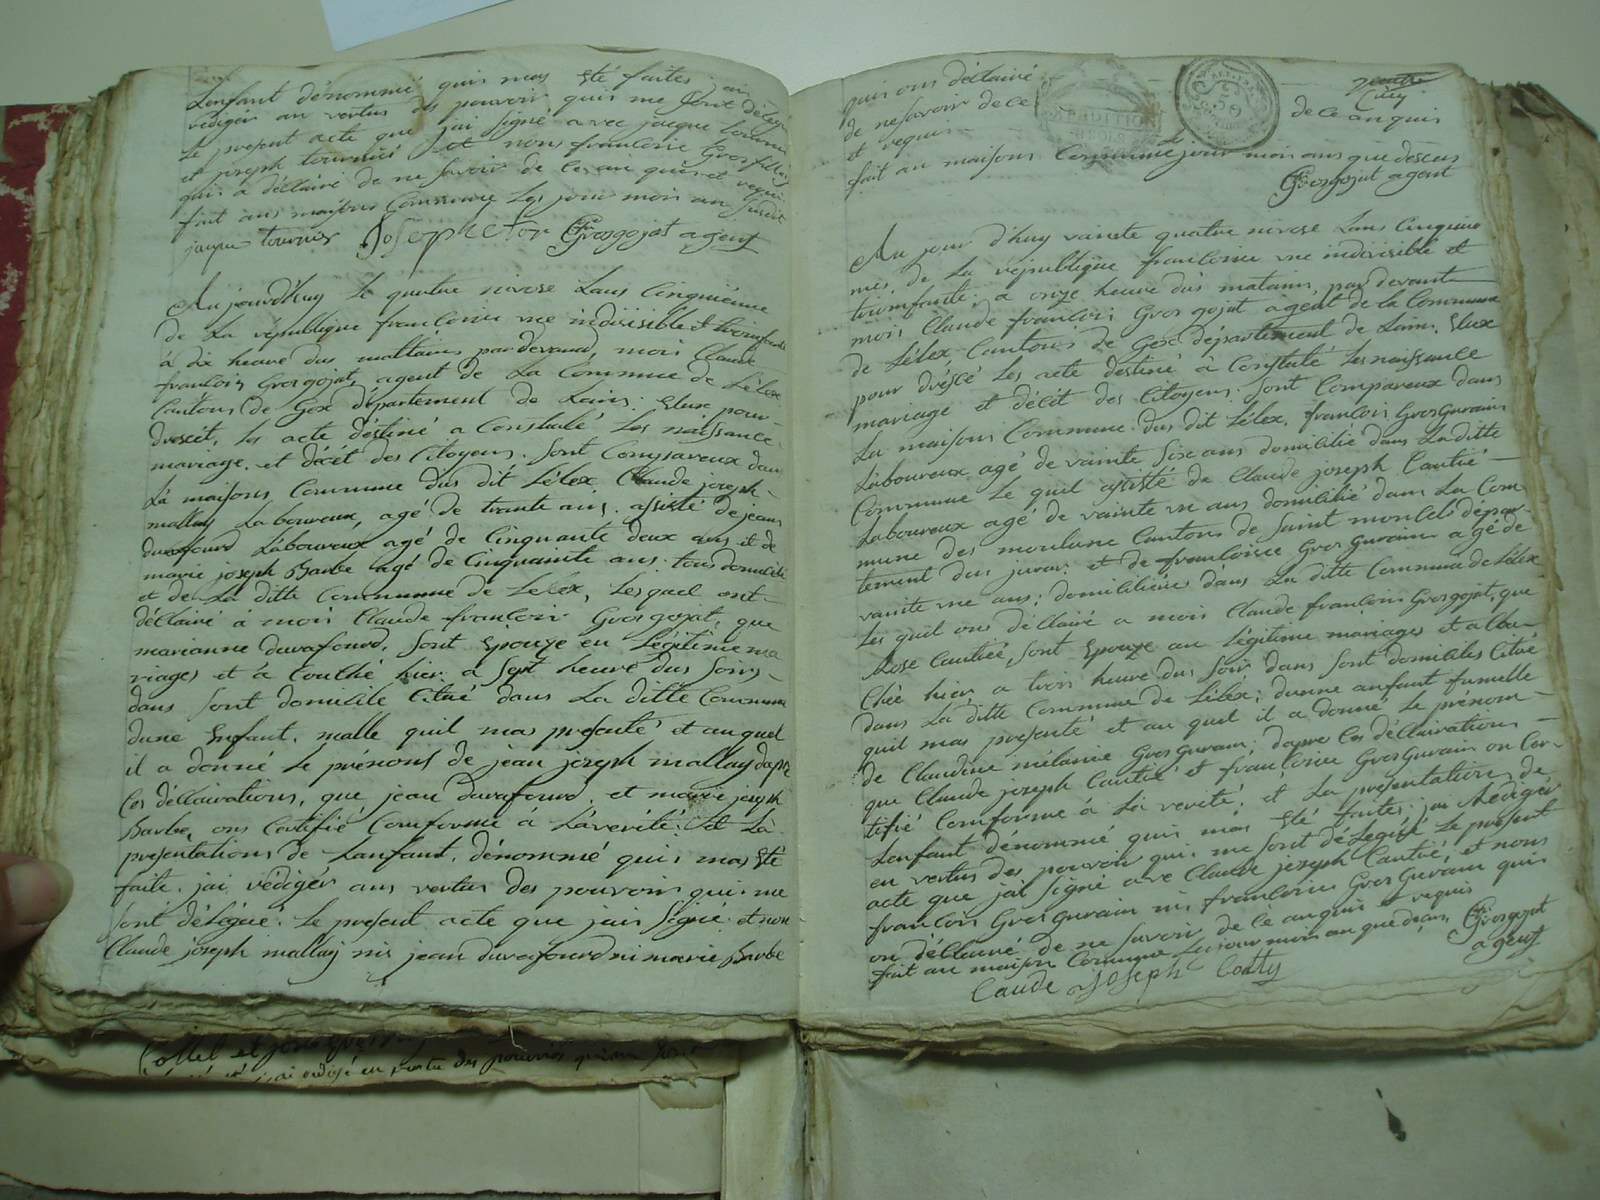 Lenfant dénommé quis mas èté faites jai
rédiger au vertus des pouvoir quis me sont délégué
Le present acte que jai signé avec jacque tournier
et joseph tournier et nous francoise Grosfilley
quis a déllairé de ne savoir de ce au quis et requis
fait aus maisons Commune Les jour mois an susdit
jaque tournier Joseph tor Grosgojat agent
Aujourdhuy Le quatre nivose Lans Cinquiéme
de La république francoise une indivisible et triomfante
à dix heure dus mattains par devand, mois Claude
francois Grosgojat, agent de La Commune de Lélex
Cantons de Gex département de Lains; Elux pour
dressèt, les acte déstiné a Constaté Les naissance
mariage, et décét des Citoyens, sont Compareux dans
La maisons Commune dus dit Lélex, Claude joseph
mallay Laboureux, agé de trante ans, assisté de jean
duraford Laboureux agé de Cinquante deux ans et de
marie joseph Barbe agé de Cinquainte ans tous domicilié
et de La ditte Commune de Lelex, Lesquel ont
déllairé à mois Claude francois Grosgojat, que
marianne durafourd, sont Epouze en Légitime ma
riages et à Couché hier a sept heure dus soirs
dans sont domicile Citué dans La ditte Commune
dune Enfant, malle quil mas presenté et auquel
il a donné Le prénoms de jean joseph mallay dapré
Les déllairations, que jean durafourd, et marie joseph
Barbe, ons Certifié Comforme a Lavérité: et La
presentations de Lanfant, dénommé quis mas èté
faite, jai rédigér aus vertus des pouvoirs quis me
sont délégué: Le present acte que jais signé et non
Claude joseph mallay nis jean durafourd ni marie Barbe
quis ons déllairé
de ne savoir de ce de ce au quis
et requis
fait au maisons Commune Le jour mois ans que dessus
Grosgojat agent
Au jour d'huy vainte quatre nivose Lans Cinquieme
mes, de La république francoise une indivisible et
triomfante; a onze heure dus matains, par devant
mois Claude francois Gros gojat agent de la Commune
de Lélex Cantons de Gex département de Lains, Elux
pour dréscé Les acte destiné à Constaté Les naissance
mariage et décét des Citoyens, sont Compareux dans
La maisons Commune dus dit Lélex, francois Gros Gurain
Laboureux agé de vainte Six ans domicilié dans La ditte
Commune Le quel assisté de Claude joseph Cautié
Laboureux agé de vainte un ans domicilié dans La Com
mune des moulune Cantons de Saint monclés dépar
tement dus juras et de francoisse Gros Gurain agé de
vainte une ans; domicilière dans La ditte Commune de Lélex
Les quil ons déllairé a mois Claude francois Grosgojat, que
Rose Cautiéé sont Epouze au Légitime mariages et a lou
Chéé hier a trois heure dus soir dans sont domiciles Citué
dans La ditte Commune de Lélex: dunne anfant fumelle
quil mas presenté et au quel il a donné Le prénom
de Claudine mélanie Gros Gurain; dapre Les déllairations
que Claude joseph Cautié et francoise Gros Gurain on Cer
tifié Comforme à La verité; et La presentation de
Lenfant dénommé quis mas èté faites jai Rédigér
en vertus des pouvoir qui me sont délégué Le present
acte que jai signé avec Claude joseph Cautié, et nons
francois Gros Gurain ni francoise Gros Gurain quis
on déllairé de ne savoir de ce au quis et requis
fait au maison Commune Le jour mois an que dessus Grosgojat
agent
Caude Joseph Coitty